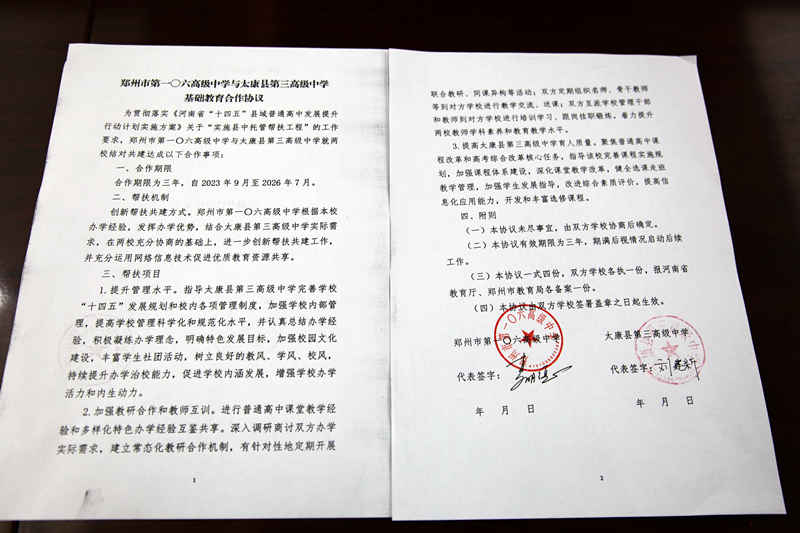 郑州市第一〇六高级中学与太康县第三高级中学
基础教育合作协议
为贯彻落实《河南省“十四五”县域普通高中发展提升
行动计划实施方案》关于“实施县中托管帮扶工程”的工作
要求，郑州市第一〇六高级中学与太康县第三高级中学就两
校结对共建达成以下合作事项：
一、合作期限
合作期限为三年，自 2023 年 9 月至 2026 年 7 月。
二、帮扶机制
创新帮扶共建方式。郑州市第一〇六高级中学根据本校
办学经验，发挥办学优势，结合太康县第三高级中学实际需
求，在两校充分协商的基础上，进一步创新帮扶共建工作，
并充分运用网络信息技术促进优质教育资源共享。
三、帮扶项目
1.提升管理水平。指导太康县第三高级中学完善学校
“十四五”发展规划和校内各项管理制度，加强学校内部管
理，提高学校管理科学化和规范化水平，并认真总结办学经
验，积极凝练办学理念，明确特色发展目标，加强校园文化
建设，丰富学生社团活动，树立良好的教风、学风、校风，
持续提升办学治校能力，促进学校内涵发展，增强学校办学
活力和内生动力。
2.加强教研合作和教师互训。进行普通高中课堂教学经
验和多样化特色办学经验互鉴共享。深入调研商讨双方办学
实际需求，建立常态化教研合作机制，有针对性地定期开展
1
联合教研、同课异构等活动；双方定期组织名师、骨干教师
等到对方学校进行教学交流、送课；双方互派学校管理干部
和教师到对方学校进行培训学习、跟岗挂职锻炼，着力提升
两校教师学科素养和教育教学水平。
3.提高太康县第三高级中学育人质量。聚焦普通高中课
程改革和高考综合改革核心任务，指导该校完善课程实施规
划，加强课程体系建设，深化课堂教学改革，健全选课走班
教学管理，加强学生发展指导，改进综合素质评价，提高信
息化应用能力，开发和丰富选修课程。
四、附则
（一）本协议未尽事宜，由双方学校协商后确定。
（二）本协议有效期限为三年，期满后视情况启动后续
工作。
（三）本协议一式四份，双方学校各执一份，报河南省
教育厅、郑州市教育局各备案一份。
（四）本协议由双方学校签署盖章之日起生效。
郑州市第一〇六高级中学
太康县第三高级中学
代表签字：
代表签字：
年 月 日
年 月 日
2